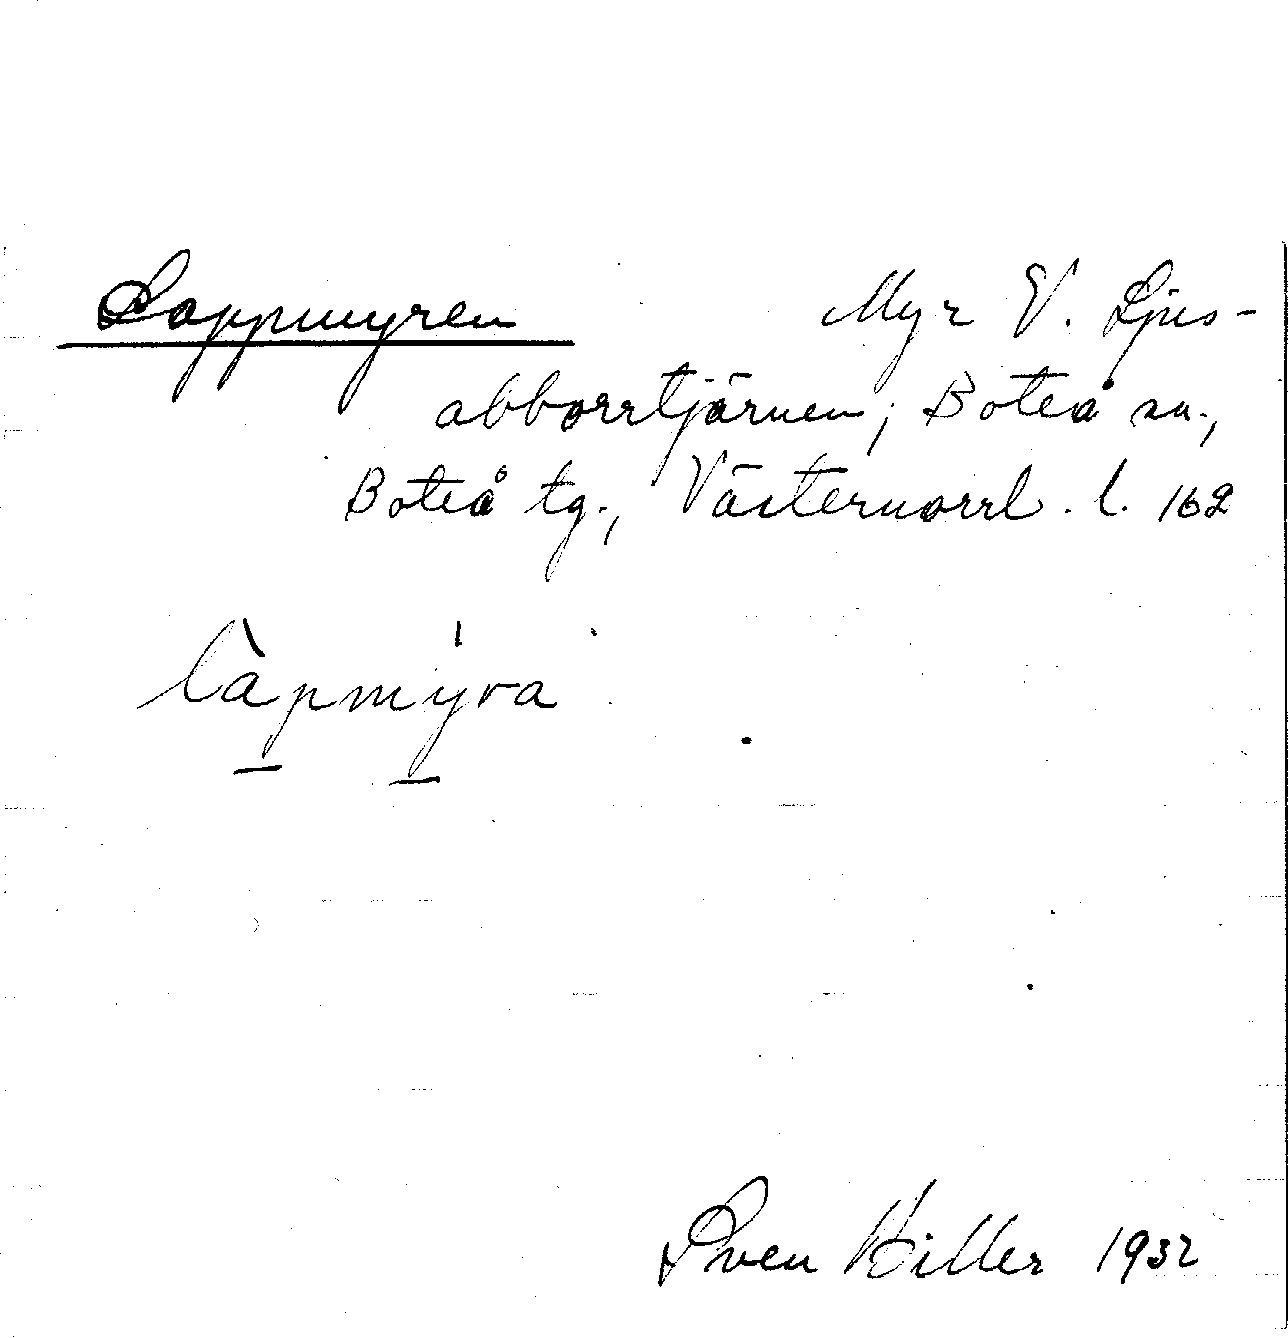 Lappmyren Myr V. Ljus-
abborrtjärnen, Boteå sn.,
Boteå tg., Västernorrl. l. 162
làpmýra
Sven Hiller 1932